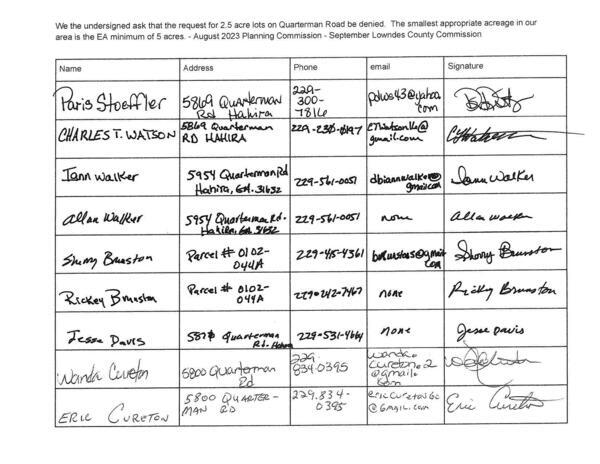 We the undersigned ask that the request for 2.5 acre lots on Quarterman Road be denied. The smallest appropriate acreage in our
area is the EA minimum of 5 acres. - August 2023 Planning Commission - September Lowndes County Commission
Name Address Phone email Signature
Paris Stoeffler 5869 Quarterman Rd Hahira 229-300-7816 @yahoo.com
CHARLES T. WATSON 5869 Quarterman RD HAHIRA 229-230-0197 CTWatson16@gmail.com
Iann Walker 5954 Quarterman Rd Hahira, GA. 31632 229-561-0051 dbiannwalker@gmail.com Iann Walker
Allan Walker 5954 Quarterman Rd. Hahira, GA 31632 229-561-0051 none Allan Walker
Brunston Parcel # 0102-044A 229-415-4361 @gmail.com Brunston
Rickey Brunston Parcel # 0102-044A 229-242-7467 none Ricky Brunston
Jesse Davis Quarterman Rd. Hahira 229-531-4664 none Jesse Davis
Wanda Cureton 5800 Quarterman Rd 229 834.0395 wanda.cureton.2@gmail.com
ERIC CURETON 5800 QUARTER-MAN RD 229.834-0395 ericcureton60@Gmail.com Eric Cureton